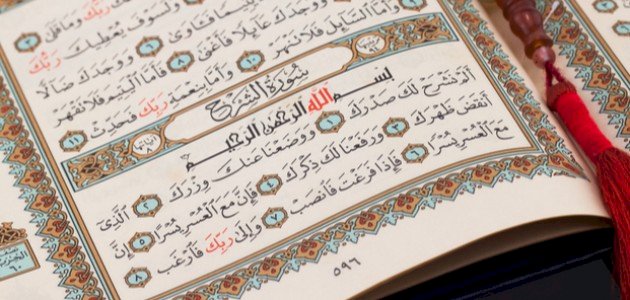 رَبُّكَ وَمَا قَلَىٰ
وَلَسَوْفَ يُعْطِيكَ رَبُّكَ
يَتِيمًا فَـَٔاوَىٰ ٦ وَوَجَدَكَ ضَآلًّا
وَوَجَدَكَ عَآئِلًا فَأَغْنَىٰ ٨ فَأَمَّا ٱلْيَتِيمَ فَلَا تَقْهَرْ
وَأَمَّا ٱلسَّآئِلَ فَلَا تَنْهَرْ ١٠ وَأَمَّا بِنِعْمَةِ رَبِّكَ فَحَدِّثْ ١١
سُورَةُ الشَّرْحِ
بِسْمِ ٱللَّهِ ٱلرَّحْمَٰنِ ٱلرَّحِيمِ
أَلَمْ نَشْرَحْ لَكَ صَدْرَكَ ١ وَوَضَعْنَا عَنكَ وِزْرَكَ ٢ ٱلَّذِىٓ
أَنقَضَ ظَهْرَكَ ٣ وَرَفَعْنَا لَكَ ذِكْرَكَ ٤ فَإِنَّ مَعَ ٱلْعُسْرِ يُسْرًا ٥ إِنَّ
مَعَ ٱلْعُسْرِ يُسْرًا ٦ فَإِذَا فَرَغْتَ فَٱنصَبْ ٧ وَإِلَىٰ رَبِّكَ فَٱرْغَب ٨
٥٩٦